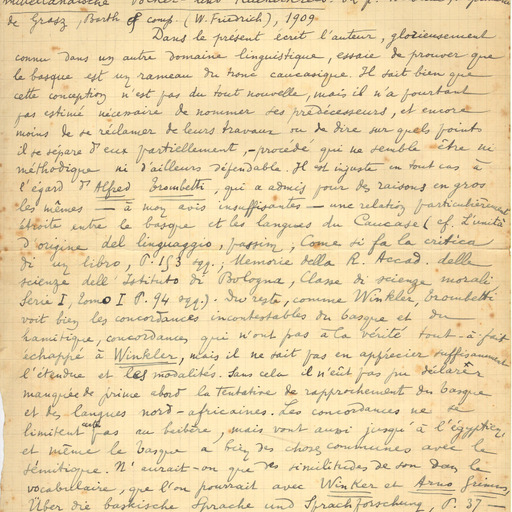 de Grasz, Barth & comp. (W. Friedrich), 1909
Dans le présent écrit l'auteur, glorieusement
connu dans un autre domaine linguistique, essaie de prouver que
le basque est un rameau du tronc caucasique. Il sait bien que
cette conception n'est pas du tout nouvelle, mais il n'a pourtant
pas estimé nécessaire de nommer ses prédécesseurs, et encore
moins de se réclamer de leurs travaux ou de dire sur quels points
il se sépare d'eux partiellement, - procédé qui ne semble être ni
méthodique ni d'ailleurs défendable. Il est injuste en tout cas à
l'égard d'Alfred Trombetti, qui a admis pour des raisons en gros
les mêmes — à mon avis insuffisantes — une relation particulièrement
étroite entre le basque et les langues du Caucase (cf. L'unità
d'origine del linguaggio, passim, Come si fa la critica
di un libro, P. 153 sqq.; Memorie della R. Accad. delle
scienze dell'Istituto di Bologna, Classe di scienze morali
Serie I, Tomo I P. 94 sqq.). Du reste, comme Winkler, Trombetti
voit bien les concordances incontestables du basque et du
hamitique, concordances qui n'ont pas à la vérité tout-à-fait
échappé à Winkler, mais il ne sait pas en apprécier suffisamment
l'étendue et les modalités. Sans cela il n'eût pas pu déclarer
manquée de prime abord la tentative de rapprochement du basque
et des langues nord-africaines. Les concordances ne se
limitent pas au berbère, mais vont aussi jusqu'à l'égyptien,
et même le basque a bien des choses communes avec le
sémitique. N'aurait-on que des similitudes de son dans le
vocabulaire, que l'on pourrait avec Winkler et Arno Grimm,
Über die baskische Sprache und Sprachforschung, P. 37 —